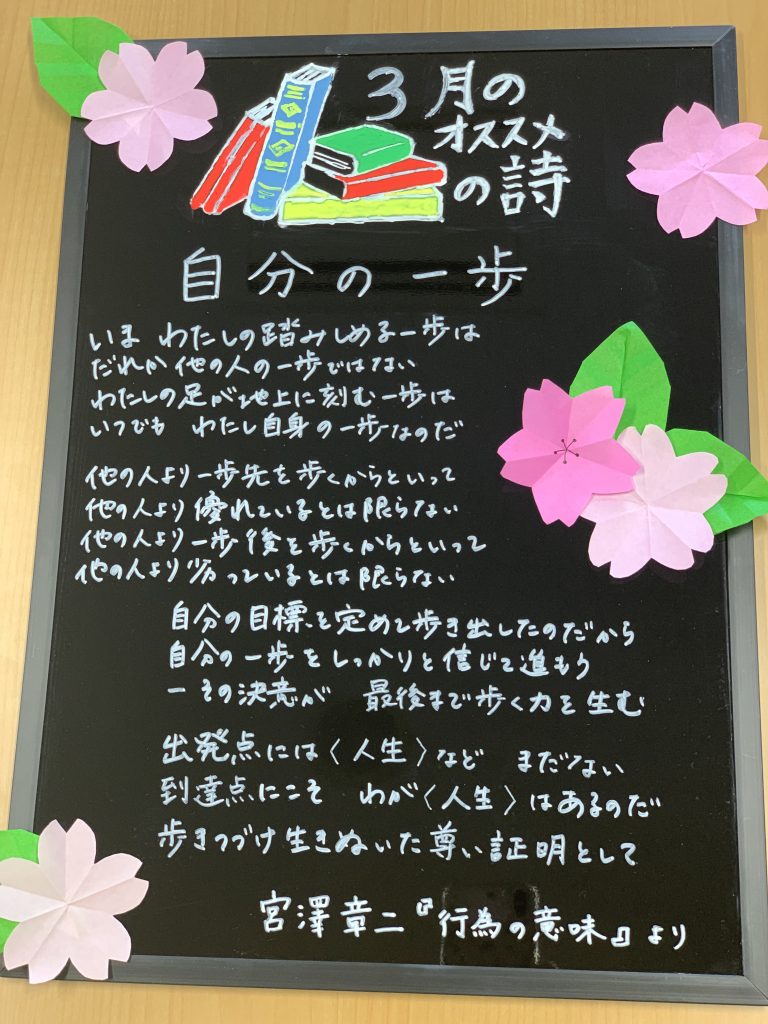 3月の
オススメ
の詩
自分の一歩
いま わたしの踏みしめる一歩は
だれか他の人の一歩ではない
わたしの足が地上に刻む一歩は
いつでも わたし自身の一歩なのだ
他の人より一歩先を歩くからといって
他の人より優れているとは限らない
他の人より一歩後を歩くからといって
他の人より劣っているとは限らない
自分の目標を定めて歩き出したのだから
自分の一歩をしっかりと信じて進もう
ーその決意が 最後まで歩く力を生む
出発点には〈人生〉など まだない
到達点にこそ わが〈人生〉はあるのだ
歩きつづけ生きぬいた尊い証明として
宮澤章二『行為の意味』より